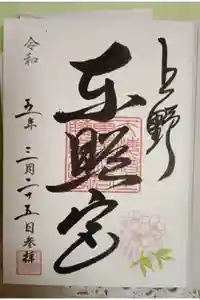 上野
東照宮
令和
五年
三月二十五日参拝